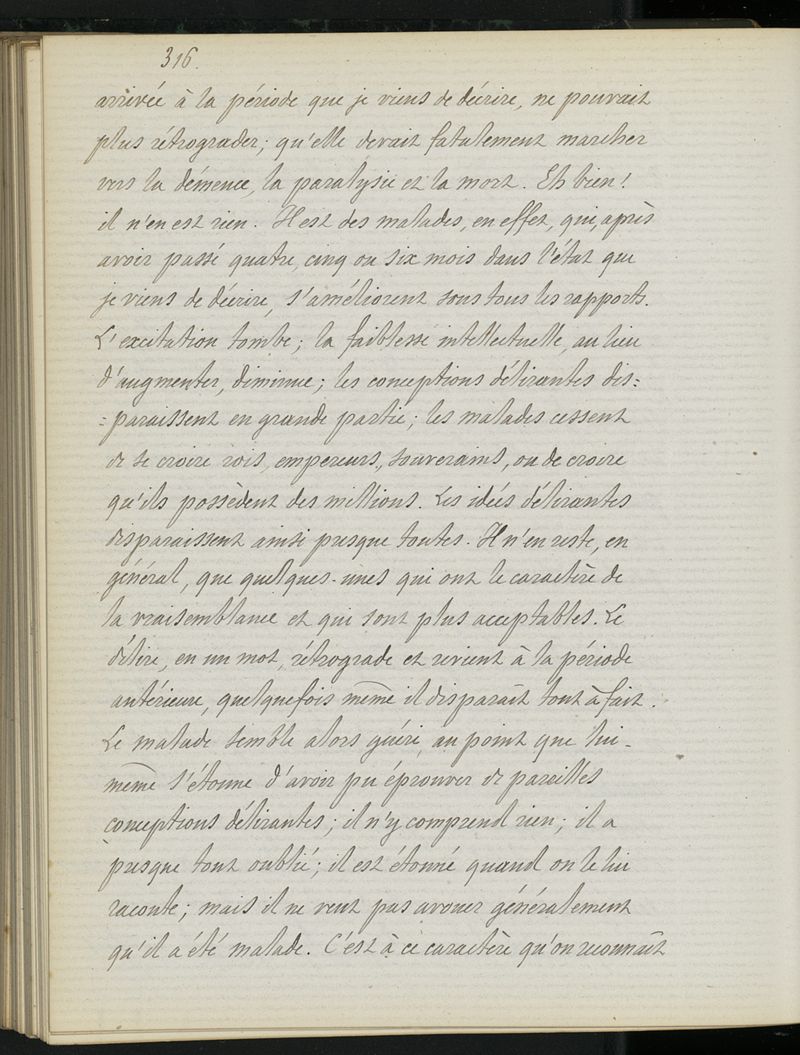 316.
arrivée à la période que je viens de décrire, ne pouvait
plus rétrograder; qu'elle devait fatalement marcher
vers la démence, la paralysie et la mort. Eh bien!
il n'en est rien. Il est des malades, en effet, qui, après
avoir passé quatre, cinq ou six mois dans l'état que
je viens de décrire, s'améliorent sous tous les rapports.
L'excitation tombe; la faiblesse intellectuelle, au lieu
d'augmenter, diminue; les conceptions délirantes dis=
=paraissent en grande partie; les malades cessent
de se croire rois, empereurs, souverains, ou de croire
qu'ils possèdent des millions. Les idées délirantes
disparaissent ainsi presque toutes. Il n'en reste, en
général, que quelques-unes qui ont le caractère de
la vraisemblance et qui sont plus acceptables. Le
délire, en un mot, rétrograde et revient à la période
antérieure, quelquefois même il disparaît tout à fait.
Le malade semble alors guéri, au point que lui-
même s'étonne d'avoir pu éprouver de pareilles
conceptions délirantes; il n'y comprend rien; il a
presque tout oublié; il est étonné quand on le lui
raconte; mais il ne veut pas avouer généralement
qu'il a été malade. C'est à ce caractère qu'on reconnaît